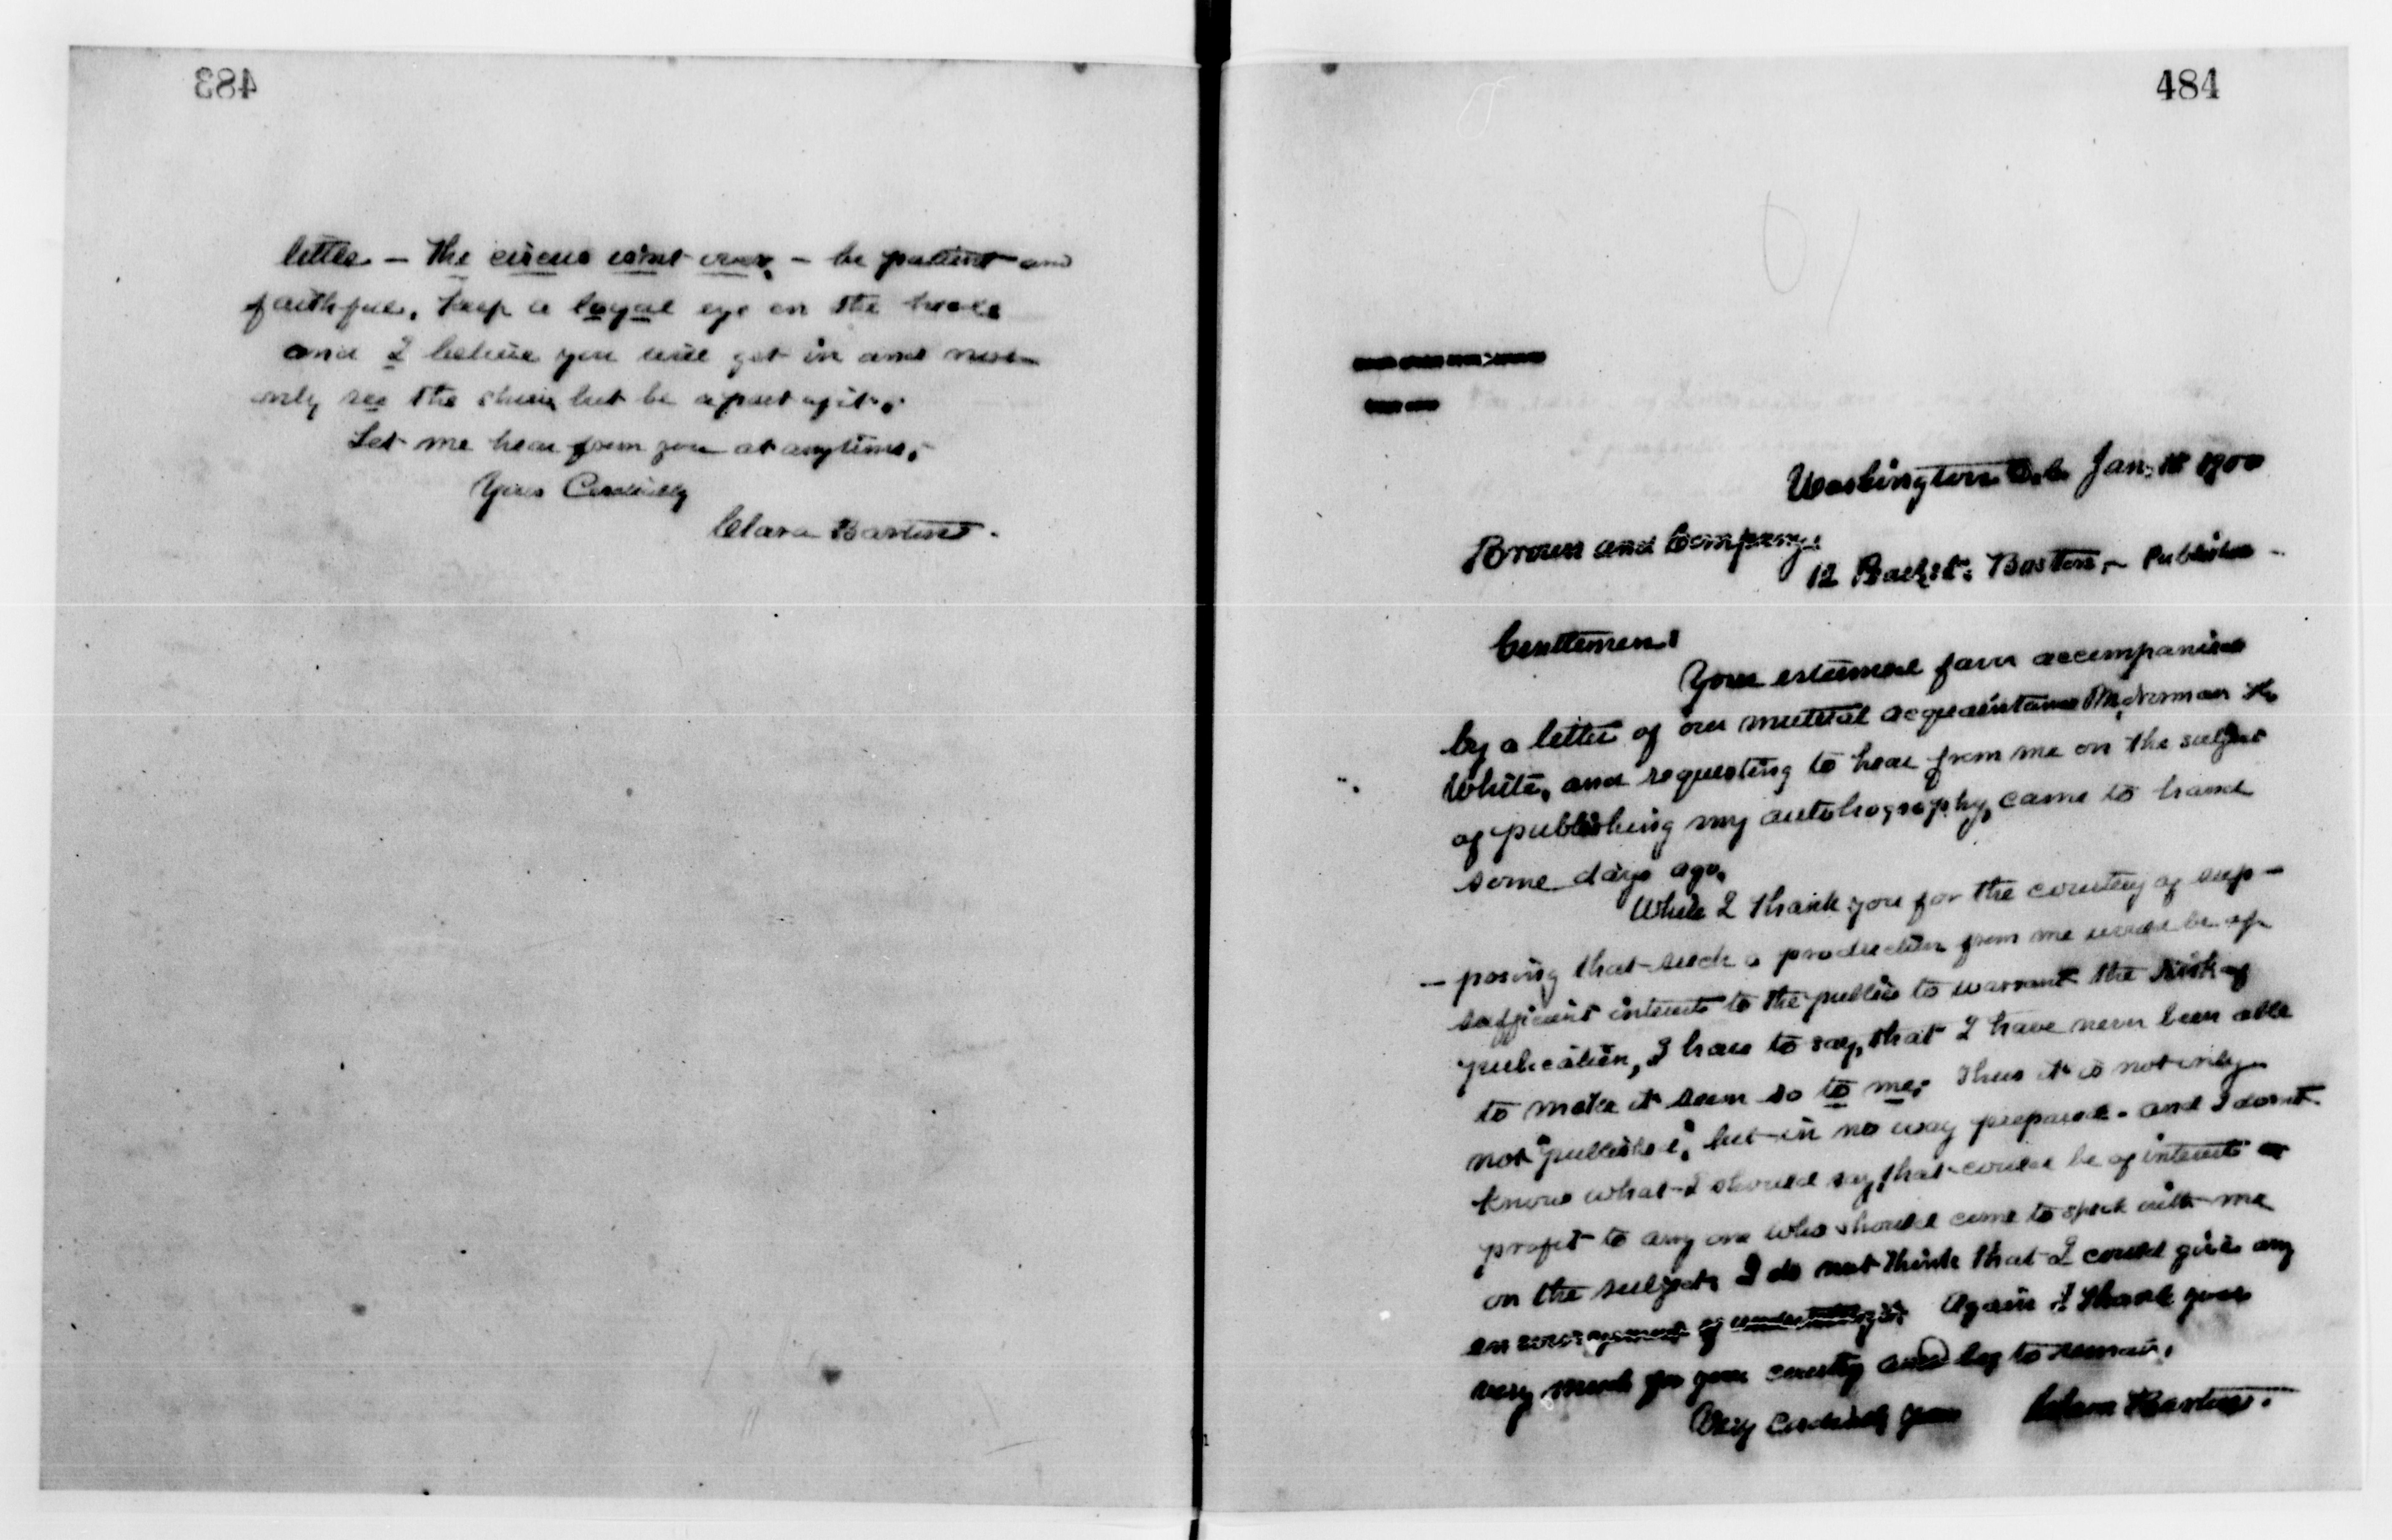 483
letter — The circus isn't over, — be patient and
faithful, keep a loyal eye on the
and I believe you will get in and not
only see the show, but be a part of it.
Let me hear from you at anytime,
Yours Cordially
Clara Barton.
484
Washington D.C. Jan. 18 1900
Brown and Company,
12 Pearl St. Boston, — Publisher —
Gentlemen!
Your esteemed favor accompanied
by a letter of our mutual acquaintance Mr. Norman
White, and requesting to hear from me on the subject
of publishing my autobiography, came to hand
some days ago.
While I thank you for the courtesy of sup-
- posing that such a production from me would be of
sufficient interest to the public to warrant the risk of
publication, I have to say, that I have never been able
to make it seem so to me; Thus it is not only
not "published", but in no way prepared - and I don't
know what I should say that could be of interest or
profit to any one who should come to speak with me
on the subject. I do not think that I could give any
encouragement of undertaking it. Again I thank you
very much for your courtesy and beg to remain,
Very Cordially yours Clara Barton.